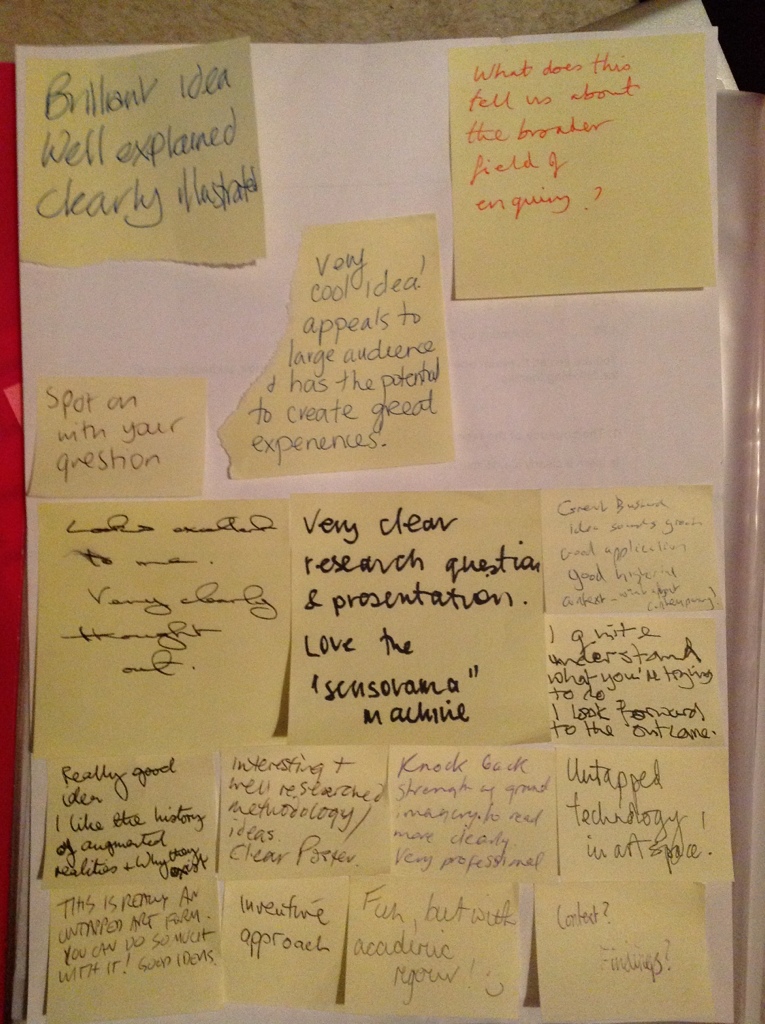 Brilliant idea
Well explained
clearly illustrated
What does this
tell us about
the broader
field of
enquiry?
Very
cool idea!
appeals to
large audience
& has the potential
to create great
experiences.
Spot on
with your
question
Looks excellent
to me.
Very clearly
thought
out.
Very clear
research question
& presentation.
Love the
"sensorama"
machine
Great
idea sounds great
Good application
good historical
context - what about
contemporary?
I quite
understand
what you're trying
to do
I look forward
to the outcome.
Really good
idea
I like the history
of augmented
realities + why they
exist
Interesting +
well researched
methodology/
ideas
Clear Poster.
Knock back
strength of ground
imagery to read
more clearly
Very professional
Untapped
technology
in art space!
THIS IS REALLY AN
UNTAPPED ART FORM.
YOU CAN DO SO MUCH
WITH IT! GOOD IDEAS.
Inventive
approach
Fun, but with
academic
rigour! :)
Context?
Findings?